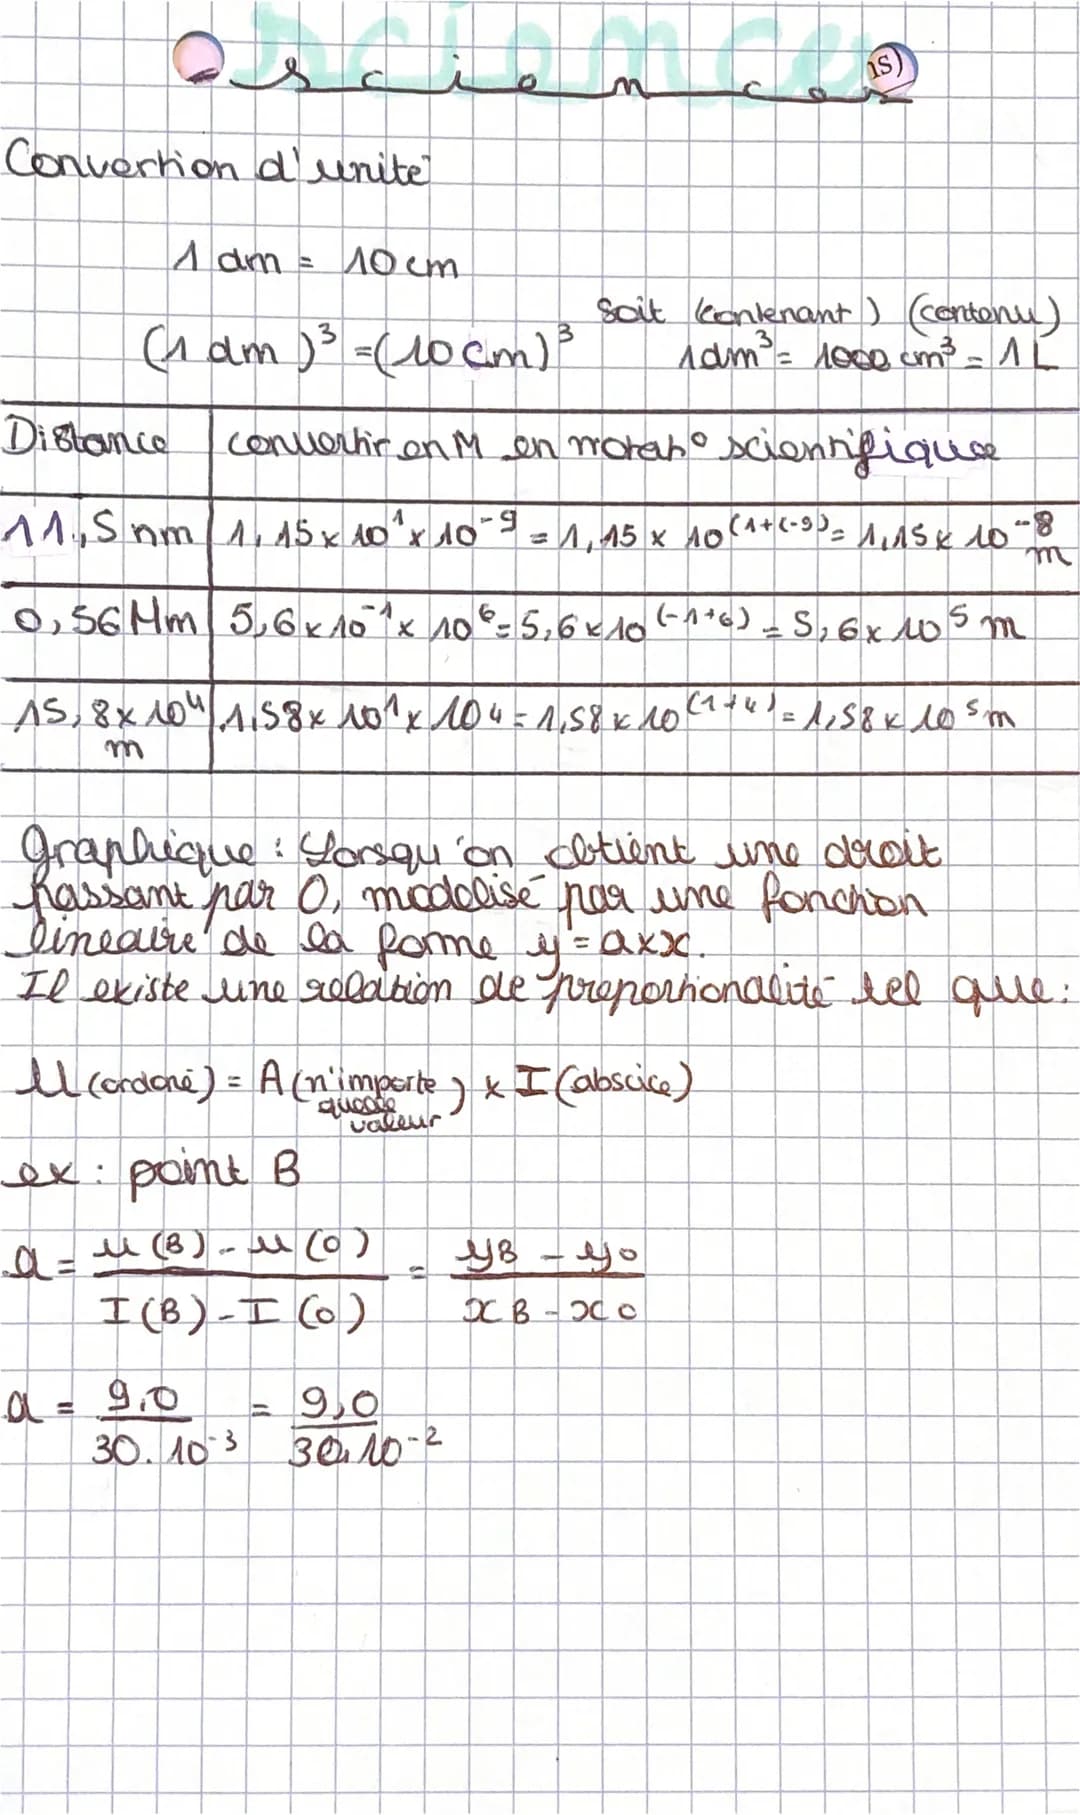 sciences
sciences
1S)
Convertion d'unité
1 dm = 10 cm
Soit (contenant) (contenu)
(1 dm)³ = (10 cm)³ 1dm³ = 1000 cm³ = 1 L
Distance convertir en M en notat° scientifique
11,5 nm 1,15 x 10¹ x 10⁻⁹ = 1,15 x 10⁽¹⁺⁽⁻⁹⁾⁾ = 1,15 x 10⁻⁸ m
0,56 Mm 5,6 x 10⁻¹ x 10⁶ = 5,6 x 10⁽⁻¹⁺⁶⁾ = 5,6 x 10⁵ m
15,8 x 10⁴ m 1,58 x 10¹ x 10⁴ = 1,58 x 10⁽¹⁺⁴⁾ = 1,58 x 10⁵ m
Graphique : Lorsqu'on obtient une droit
passant par O, modelisé par une fonction
lineaire de la forme y = a x x.
Il existe une relation de proportionalité tel que :
U (ordoné) = A (n'importe quelle valeur) x I (abscice)
ex : point B
a = u(B) - u(O) / I(B) - I(O) = yB - yO / xB - xO
a = 9,0 / 30.10⁻³ = 9,0 / 30.10⁻²